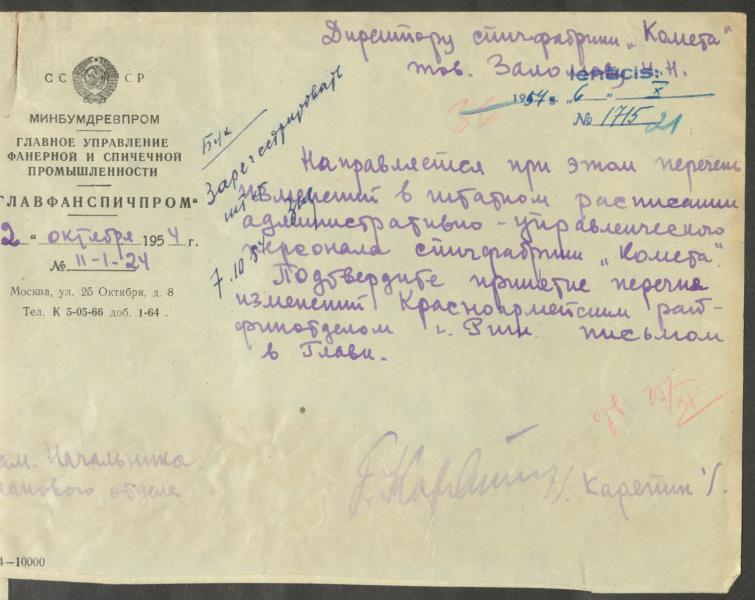 Директору спичфабрики „Комета"
тов. Н.Н.
Ienācis:
1954 g. „6" X
№ 1715
21
36
СС СР
МИНБУМДРЕВПРОМ
ГЛАВНОЕ УПРАВЛЕНИЕ
ФАНЕРНОЙ И СПИЧЕЧНОЙ
ПРОМЫШЛЕННОСТИ
ГЛАВФАНСПИЧПРОМ"
2 " октября 1954 г.
№ 11-1-24
Москва, ул. 25 Октября, д. 8
Тел. К 5-05-66 доб. 1-64.
Зарегистрировать
7.10.54
Направляется при этом перечень
изменений в штатном расписании
административно-управленческого
персонала спичфабрики „Комета".
Подтвердите принятие перечня
изменений Красноармейским рай-
финотделом г. Риги письмом
в Главк.
25/XI
ам. Начальника
ланового отдела
/. Карепин /.
4—10000